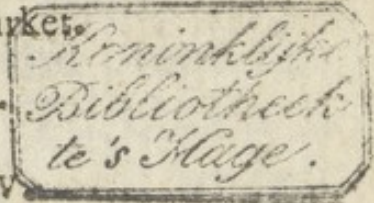 arket.
Koninklijke
Bibliotheek
te's Hage.
V